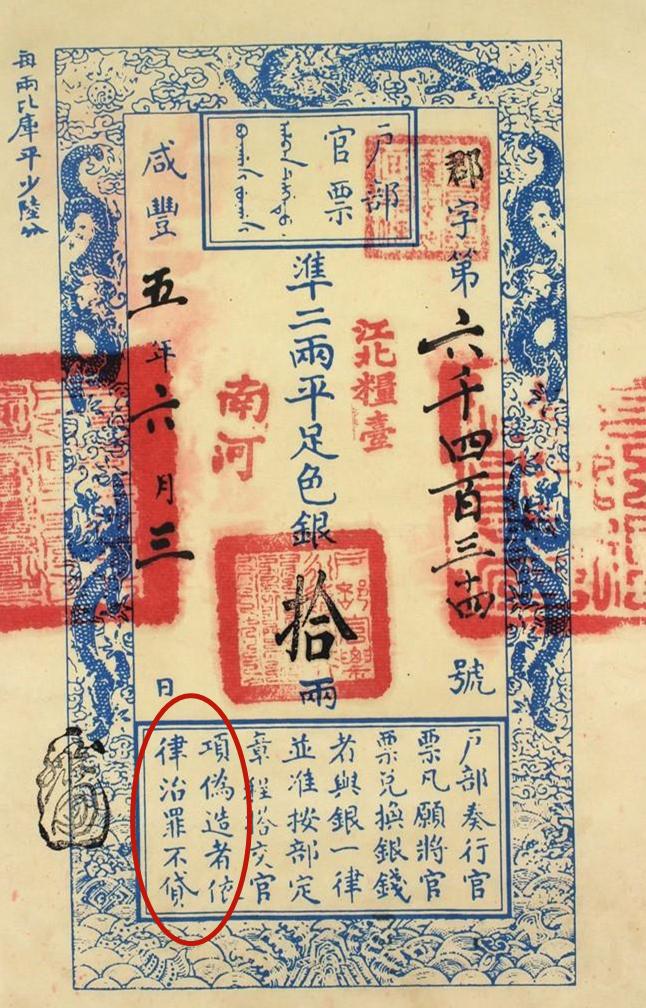 郡字第六千四百三十四號
户部
官票
江北糧臺
準二兩平足色銀拾兩
南河
咸豐五年六月三日
每兩比庫平少陸分
户部奏行官
票凡願將官
票兌換銀錢
者與銀一律
並准按部定
章程搭交官
項偽造者依
律治罪不貸